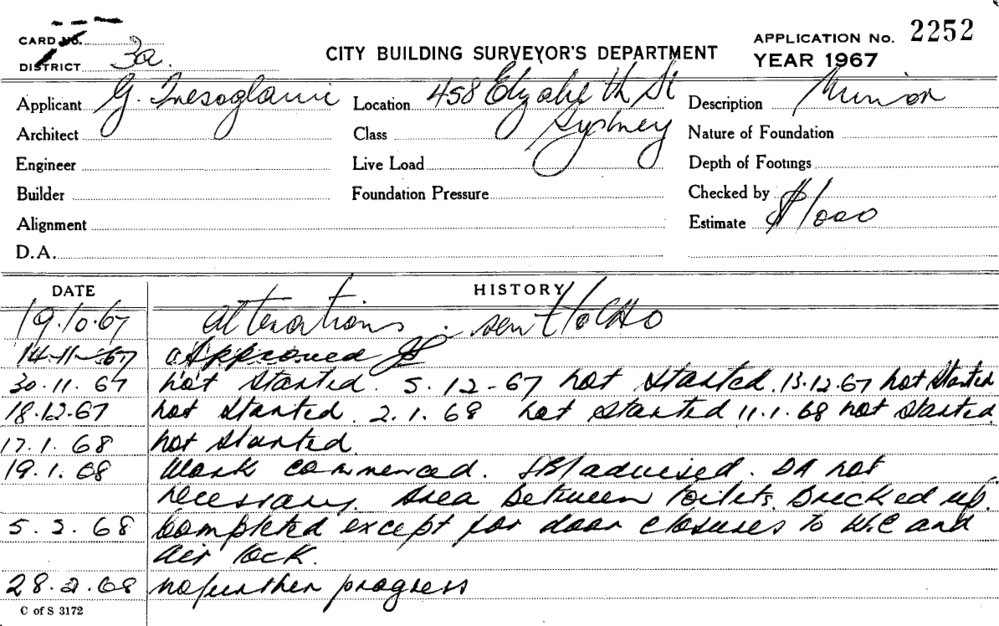 CARD No.
DISTRICT 3a.
CITY BUILDING SURVEYOR'S DEPARTMENT
APPLICATION No. 2252
YEAR 1967
Applicant G. Location 458 Elizabeth St Description Minor
Architect Class Sydney Nature of Foundation
Engineer Live Load Depth of Footings
Builder Foundation Pressure Checked by
Alignment Estimate $1000
D.A.
DATE HISTORY
19.10.67 alterations. sent to CHO
14-11-67 Approved
30.11.67 not started. 5.12-67 not started. 13.12.67 not started
18.12.67 not started. 2.1.68 not started 11.1.68 not started
17.1.68 not started.
19.1.68 Work commenced. advised. DA not
necessary. Area between toilets bricked up.
5.2.68 Completed except for door closures to W.C and
air lock.
28.2.68 no further progress
C of S 3172